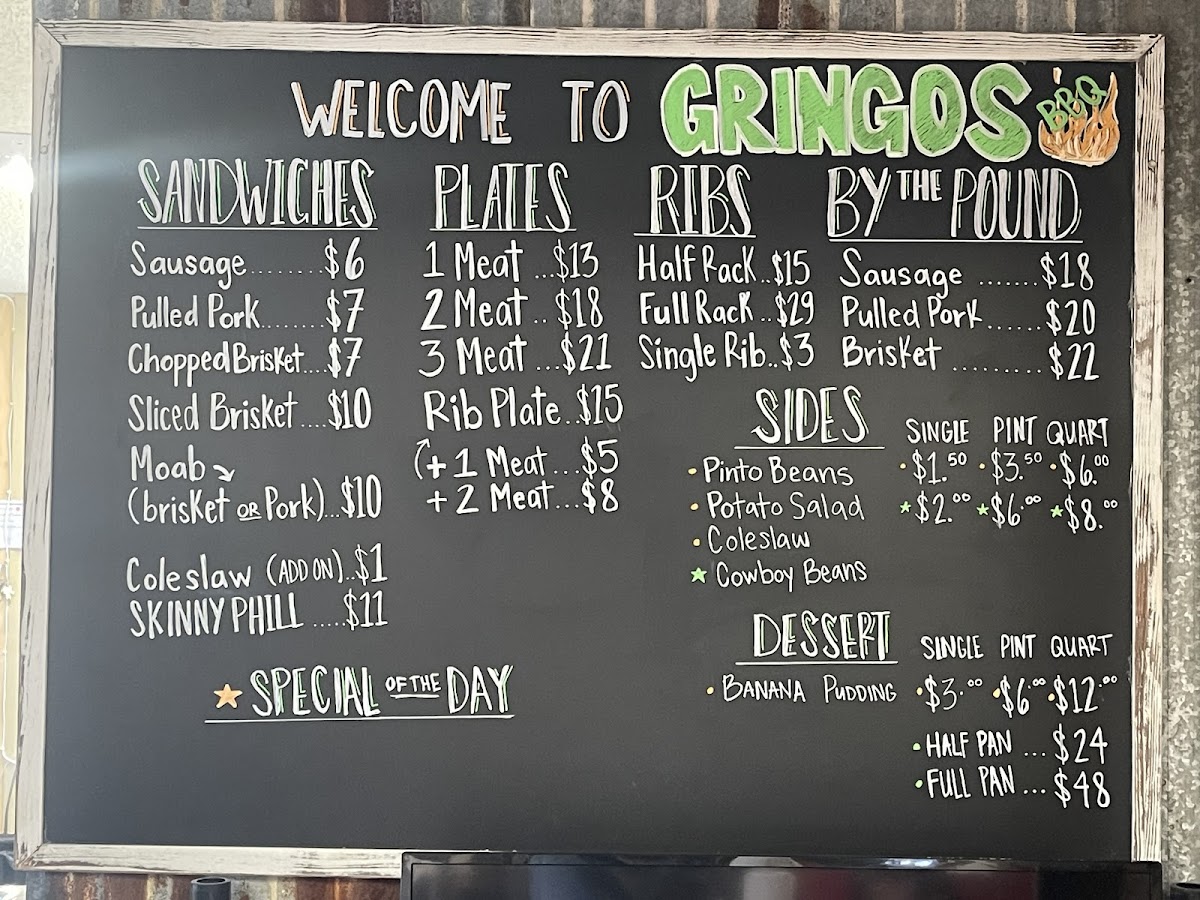 WELCOME TO GRINGOS BBQ
SANDWICHES
Sausage........$6
Pulled Pork........$7
Chopped Brisket....$7
Sliced Brisket....$10
Moab
(brisket OR Pork)...$10
Coleslaw (ADD ON)..$1
SKINNY PHILL .....$11
PLATES
1 Meat ...$13
2 Meat .. $18
3 Meat ...$21
Rib Plate..$15
(+ 1 Meat...$5
+ 2 Meat...$8
RIBS
Half Rack..$15
Full Rack..$29
Single Rib..$3
BY THE POUND
Sausage .......$18
Pulled Pork......$20
Brisket .........$22
SIDES SINGLE PINT QUART
• Pinto Beans • $1.50 • $3.50 • $6.00
• Potato Salad ★ $2.00 ★ $6.00 ★ $8.00
• Coleslaw
★ Cowboy Beans
DESSERT SINGLE PINT QUART
• BANANA PUDDING • $3.00 • $6.00 • $12.00
• HALF PAN ... $24
• FULL PAN ... $48
★ SPECIAL OF THE DAY